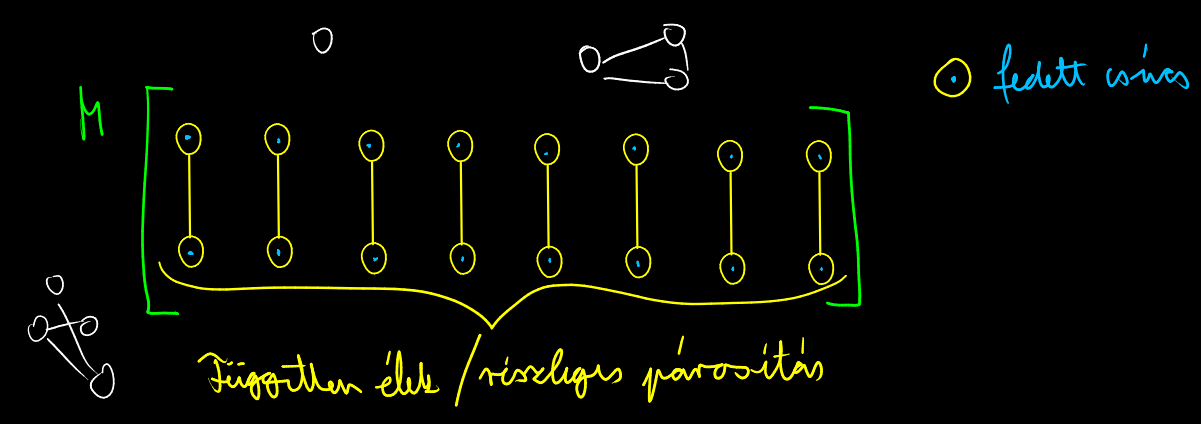 fedett csúcs
M
Független élek / részleges párosítás